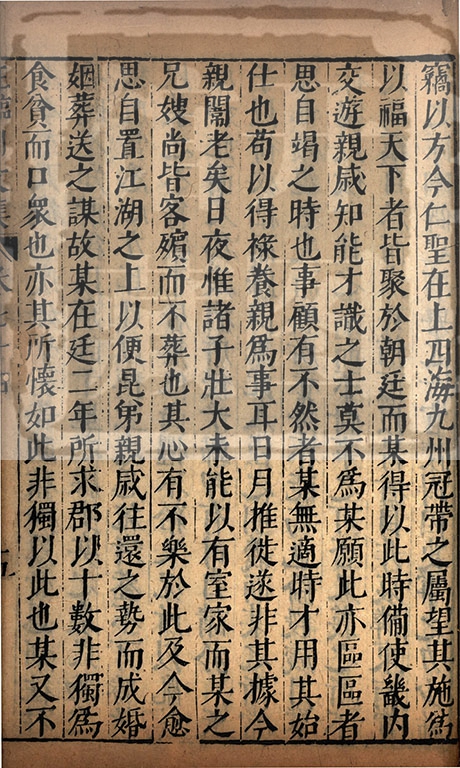 竊以方今仁聖在上四海九州冠帶之屬望其施爲
以福天下者皆聚於朝廷而某得以此時備使畿内
交遊親戚知能才識之士莫不爲某願此亦區區者
思自竭之時也事顧有不然者某無適時才用其始
仕也苟以得祿養親爲事耳日月推徙遂非其據今
親闈老矣日夜惟諸子壯大未能以有室家而某之
兄嫂尚皆客殯而不葬也其心有不樂於此及今愈
思自置江湖之上以便昆弟親戚往還之勢而成婚
姻葬送之謀故某在廷二年所求郡以十數非獨爲
食貧而口衆也亦其所懷如此非獨以此也某又不